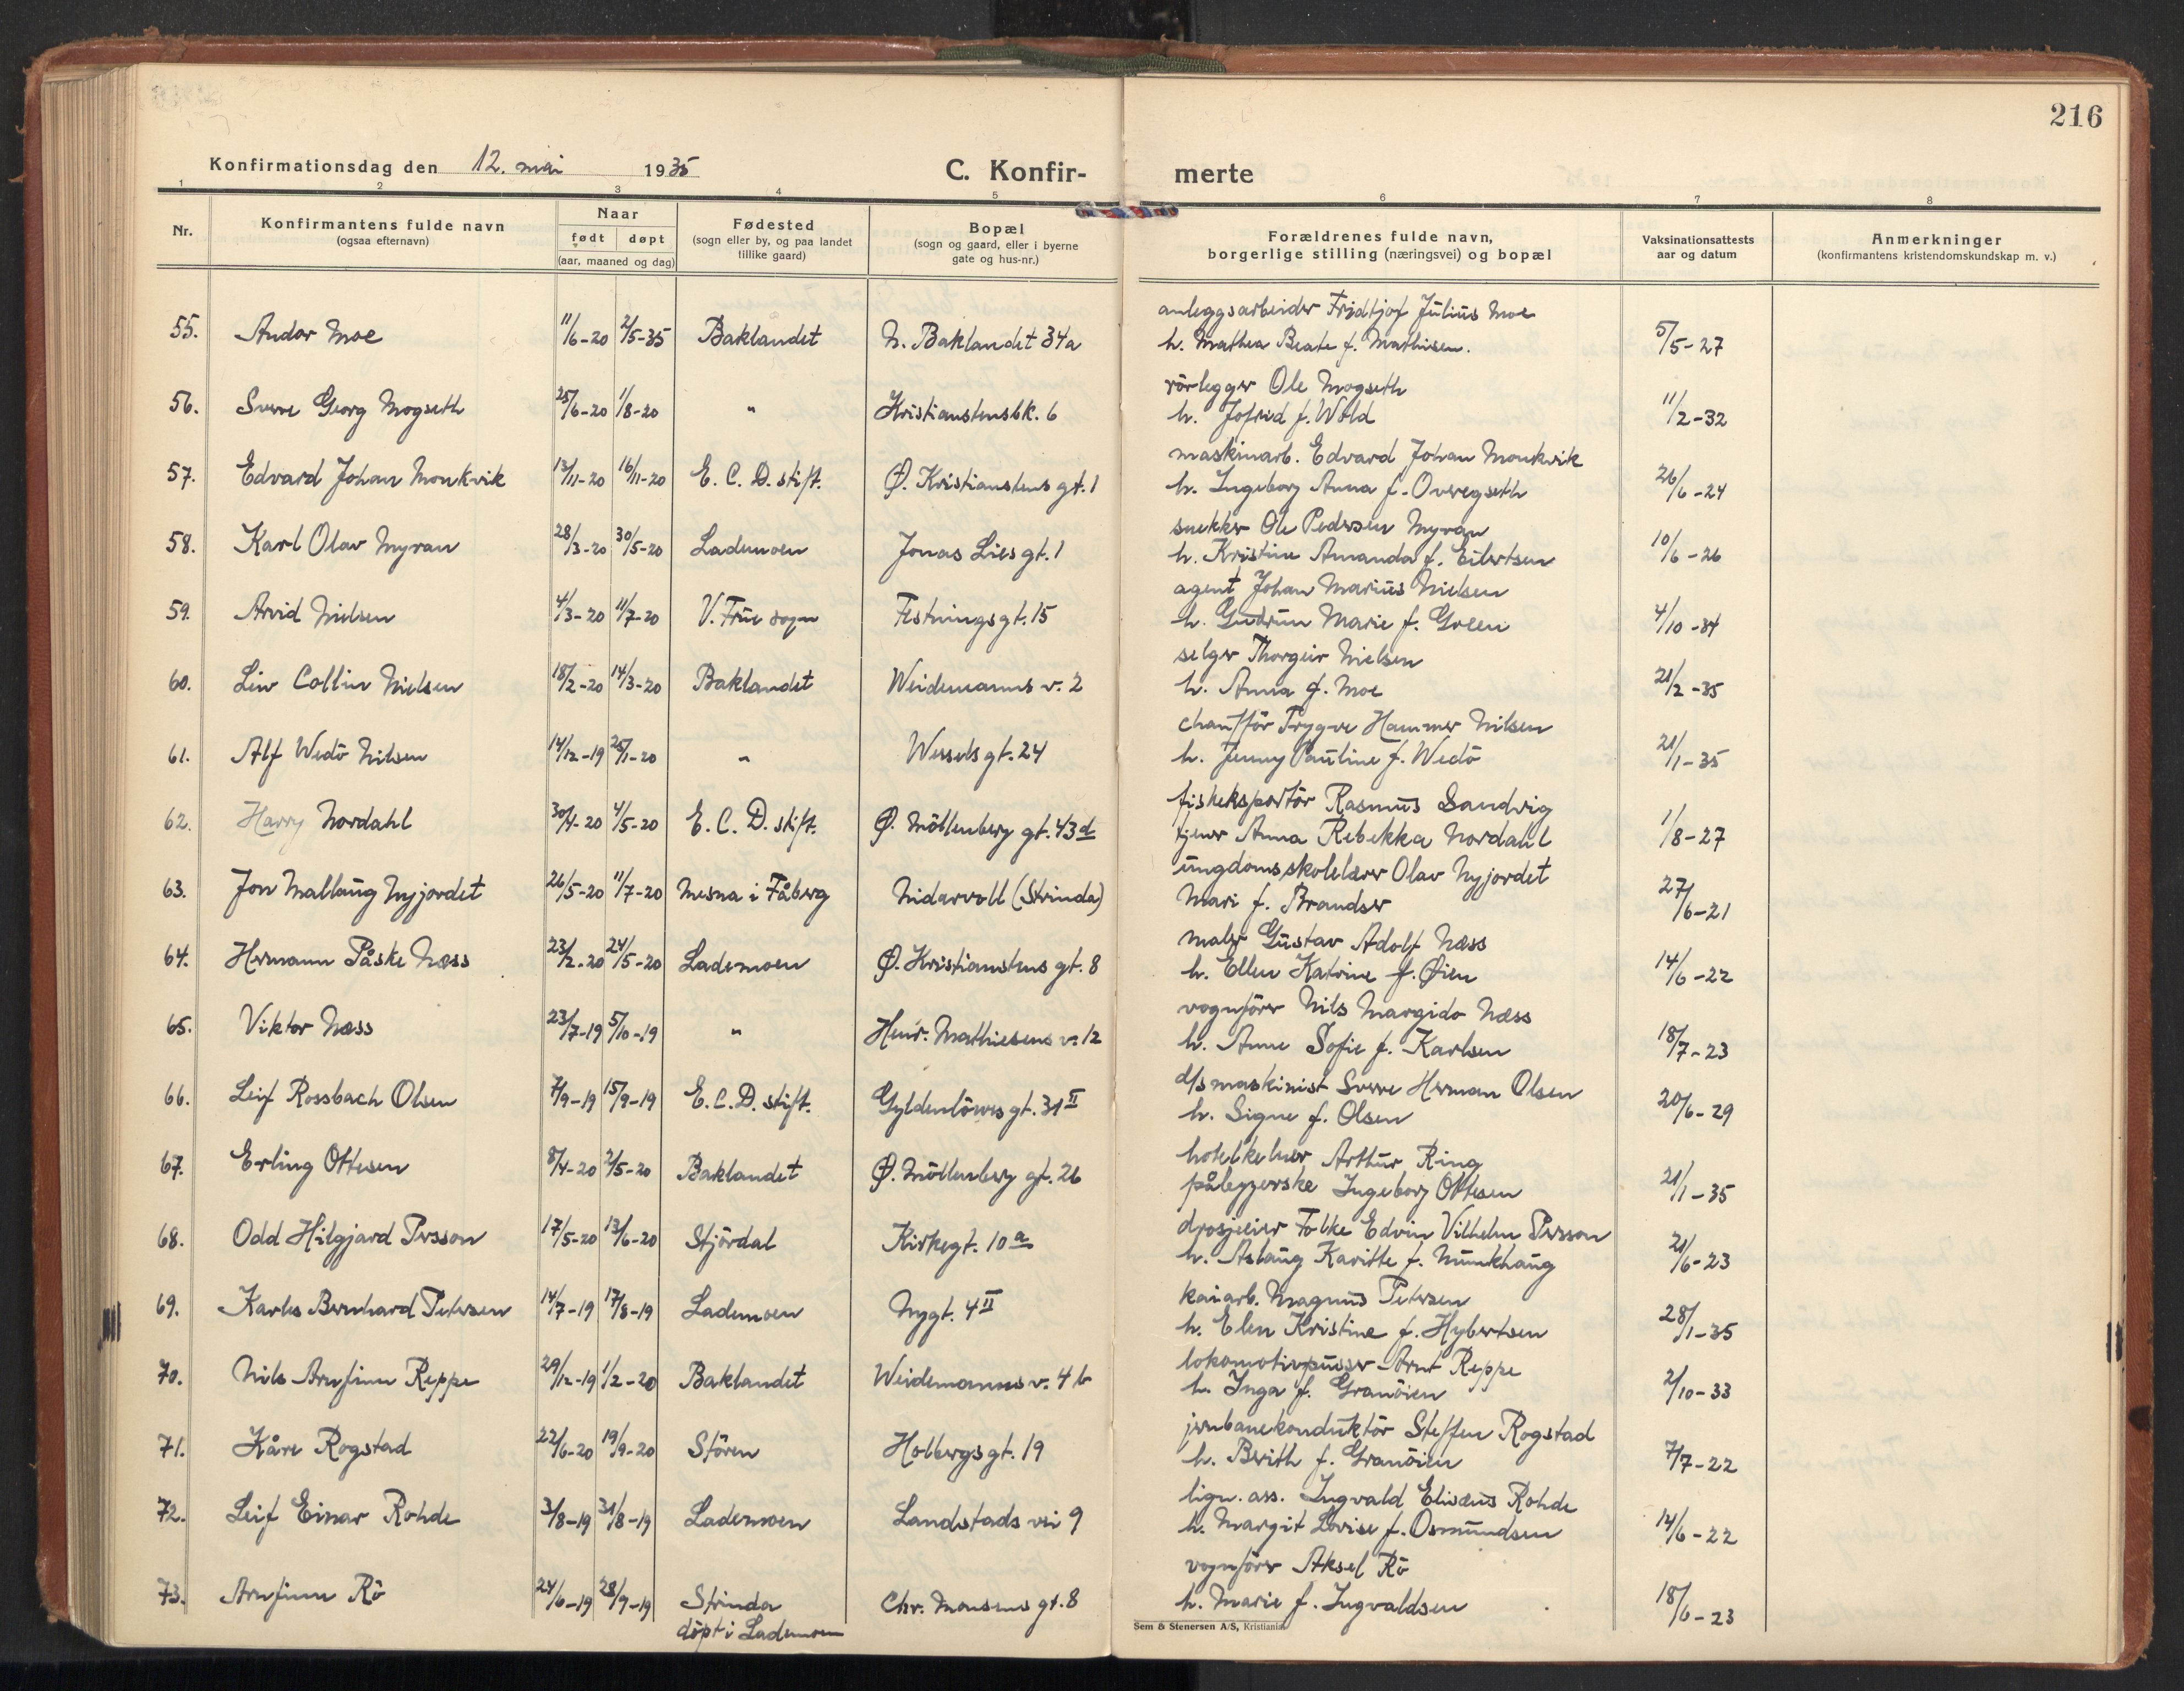 216
Konfirmationsdag den 12. mai 1935 C. Konfirmerte
1 2 3 4 5 6 7 8
Nr.
Konfirmantens fulde navn
(ogsaa efternavn)
Naar
født døpt
(aar, maaned og dag)
Fødested
(sogn eller by, og paa landet
tillike gaard)
Bopæl
(sogn og gaard, eller i byerne
gate og hus-nr.)
Forældrenes fulde navn,
borgerlige stilling (næringsvei) og bopæl
Vaksinationsattests
aar og datum
Anmerkninger
(konfirmantens kristendomskundskap m. v.)
anleggsarbeider Fridtjof Julius Moe
55. Andor Moe 11/6-20 2/5-35 Baklandet N. Baklandet 34a h. Mathea Beate f. Mathisen. 5/5-27
rörlegger Ole Mogseth
56. Sverre Georg Mogseth 25/6-20 1/8-20 " Kristianstensbk. 6 h. Jofrid f. Wold 11/2-32
maskinarb. Edvard Johan Monkvik
57. Edvard Johan Monkvik 13/11-20 16/11-20 E. C. D. stift. Ø. Kristianstens gt. 1 h. Ingeborg Anna f. Overegseth 26/6-24
snekker Ole Pedersen Myran
58. Karl Olav Myran 28/3-20 30/5-20 Lademoen Jonas Lies gt. 1 h. Kristine Amanda f. Eilertsen 10/6-26
agent Johan Marius Nielsen
59. Arvid Nielsen 4/3-20 11/7-20 V. Frue sogn Festningsgt. 15 h. Gudrun Marie f. Green 4/10-34
selger Thorgeir Nielsen
60. Liv Collin Nielsen 18/2-20 14/3-20 Baklandet Weidemanns v. 2 h. Anna f. Moe 21/2-35
chaufför Trygve Hammer Nilsen
61. Alf Wedö Nilsen 14/12-19 25/1-20 " Wessels gt. 24 h. Jenny Pauline f. Wedö 21/1-35
fiskeksportör Rasmus Sandvig
62. Harry Nordahl 30/4-20 4/5-20 E. C. D. stift. Ø. Möllenberg gt. 43d tjener Anna Rebekka Nordahl 1/8-27
ungdomsskolelærer Olav Nyjordet
63. Jon Mallaug Nyjordet 26/5-20 11/7-20 Mesna i Fåberg Nidarvoll (Strinda) Mari f. Brandser 27/6-21
maler Gustav Adolf Næss
64. Hermann Påske Næss 23/2-20 24/5-20 Lademoen Ø. Kristianstens gt. 8 h. Ellen Katrine f. Øien 14/6-22
vognförer Nils Margido Næss
65. Viktor Næss 23/7-19 5/10-19 " Henr. Mathiesens v. 12 h. Anne Sofie f. Karlsen 18/7-23
d/s maskinist Sverre Herman Olsen
66. Leif Rossbach Olsen 7/9-19 15/9-19 E. C. D. stift. Gyldenlöwes gt. 31 II h. Signe f. Olsen 20/6-29
hotelkelner Arthur Ring
67. Erling Ottesen 8/4-20 2/5-20 Baklandet Ø. Möllenberg gt. 26 påleggerske Ingeborg Ottesen 21/1-35
drosjeeier Folke Edvin Vilhelm Persson
68. Odd Hilgjard Persson 17/5-20 13/6-20 Stjördal Kirkegt. 10a h. Aslaug Karitte f. Munkhaug 21/6-23
kaiarb. Magnus Petersen
69. Karles Bernhard Petersen 14/7-19 17/8-19 Lademoen Nygt. 4 II h. Elen Kristine f. Hybertsen 28/1-35
lokomotivpusser Arnt Reppe
70. Nils Arnfinn Reppe 29/12-19 1/2-20 Baklandet Weidemanns v. 4 b h. Inga f. Granöien 2/10-33
jernbanekonduktör Steffen Rogstad
71. Kåre Rogstad 22/6-20 19/9-20 Stören Holbergs gt. 19 h. Berith f. Granöien 7/7-22
lign. ass. Ingvald Elisæus Rohde
72. Leif Einar Rohde 3/8-19 31/8-19 Lademoen Landstads vei 9 h. Margit Lovise f. Osmundsen 14/6-22
vognförer Aksel Rö
73. Arnfinn Rö 24/6-19 28/9-19 Strinda Chr. Monsens gt. 8 h. Marie f. Ingvaldsen 18/6-23
döpt i Lademoen
Sem & Stenersen A/S, Kristiania